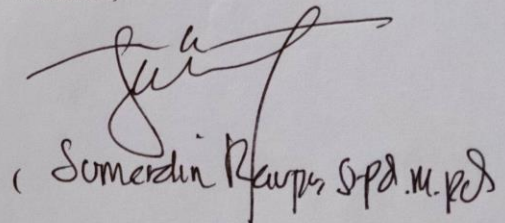 ( Sumerdin Raupu, S.pd.M.pd